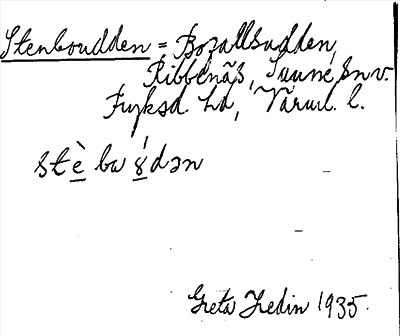 Stenboudden = Bozallsudden,
Ribbenäs, Sunne sn v.
Fryksd. hd, Värml. l.
stè ba úd ən
Greta Hedin 1935.